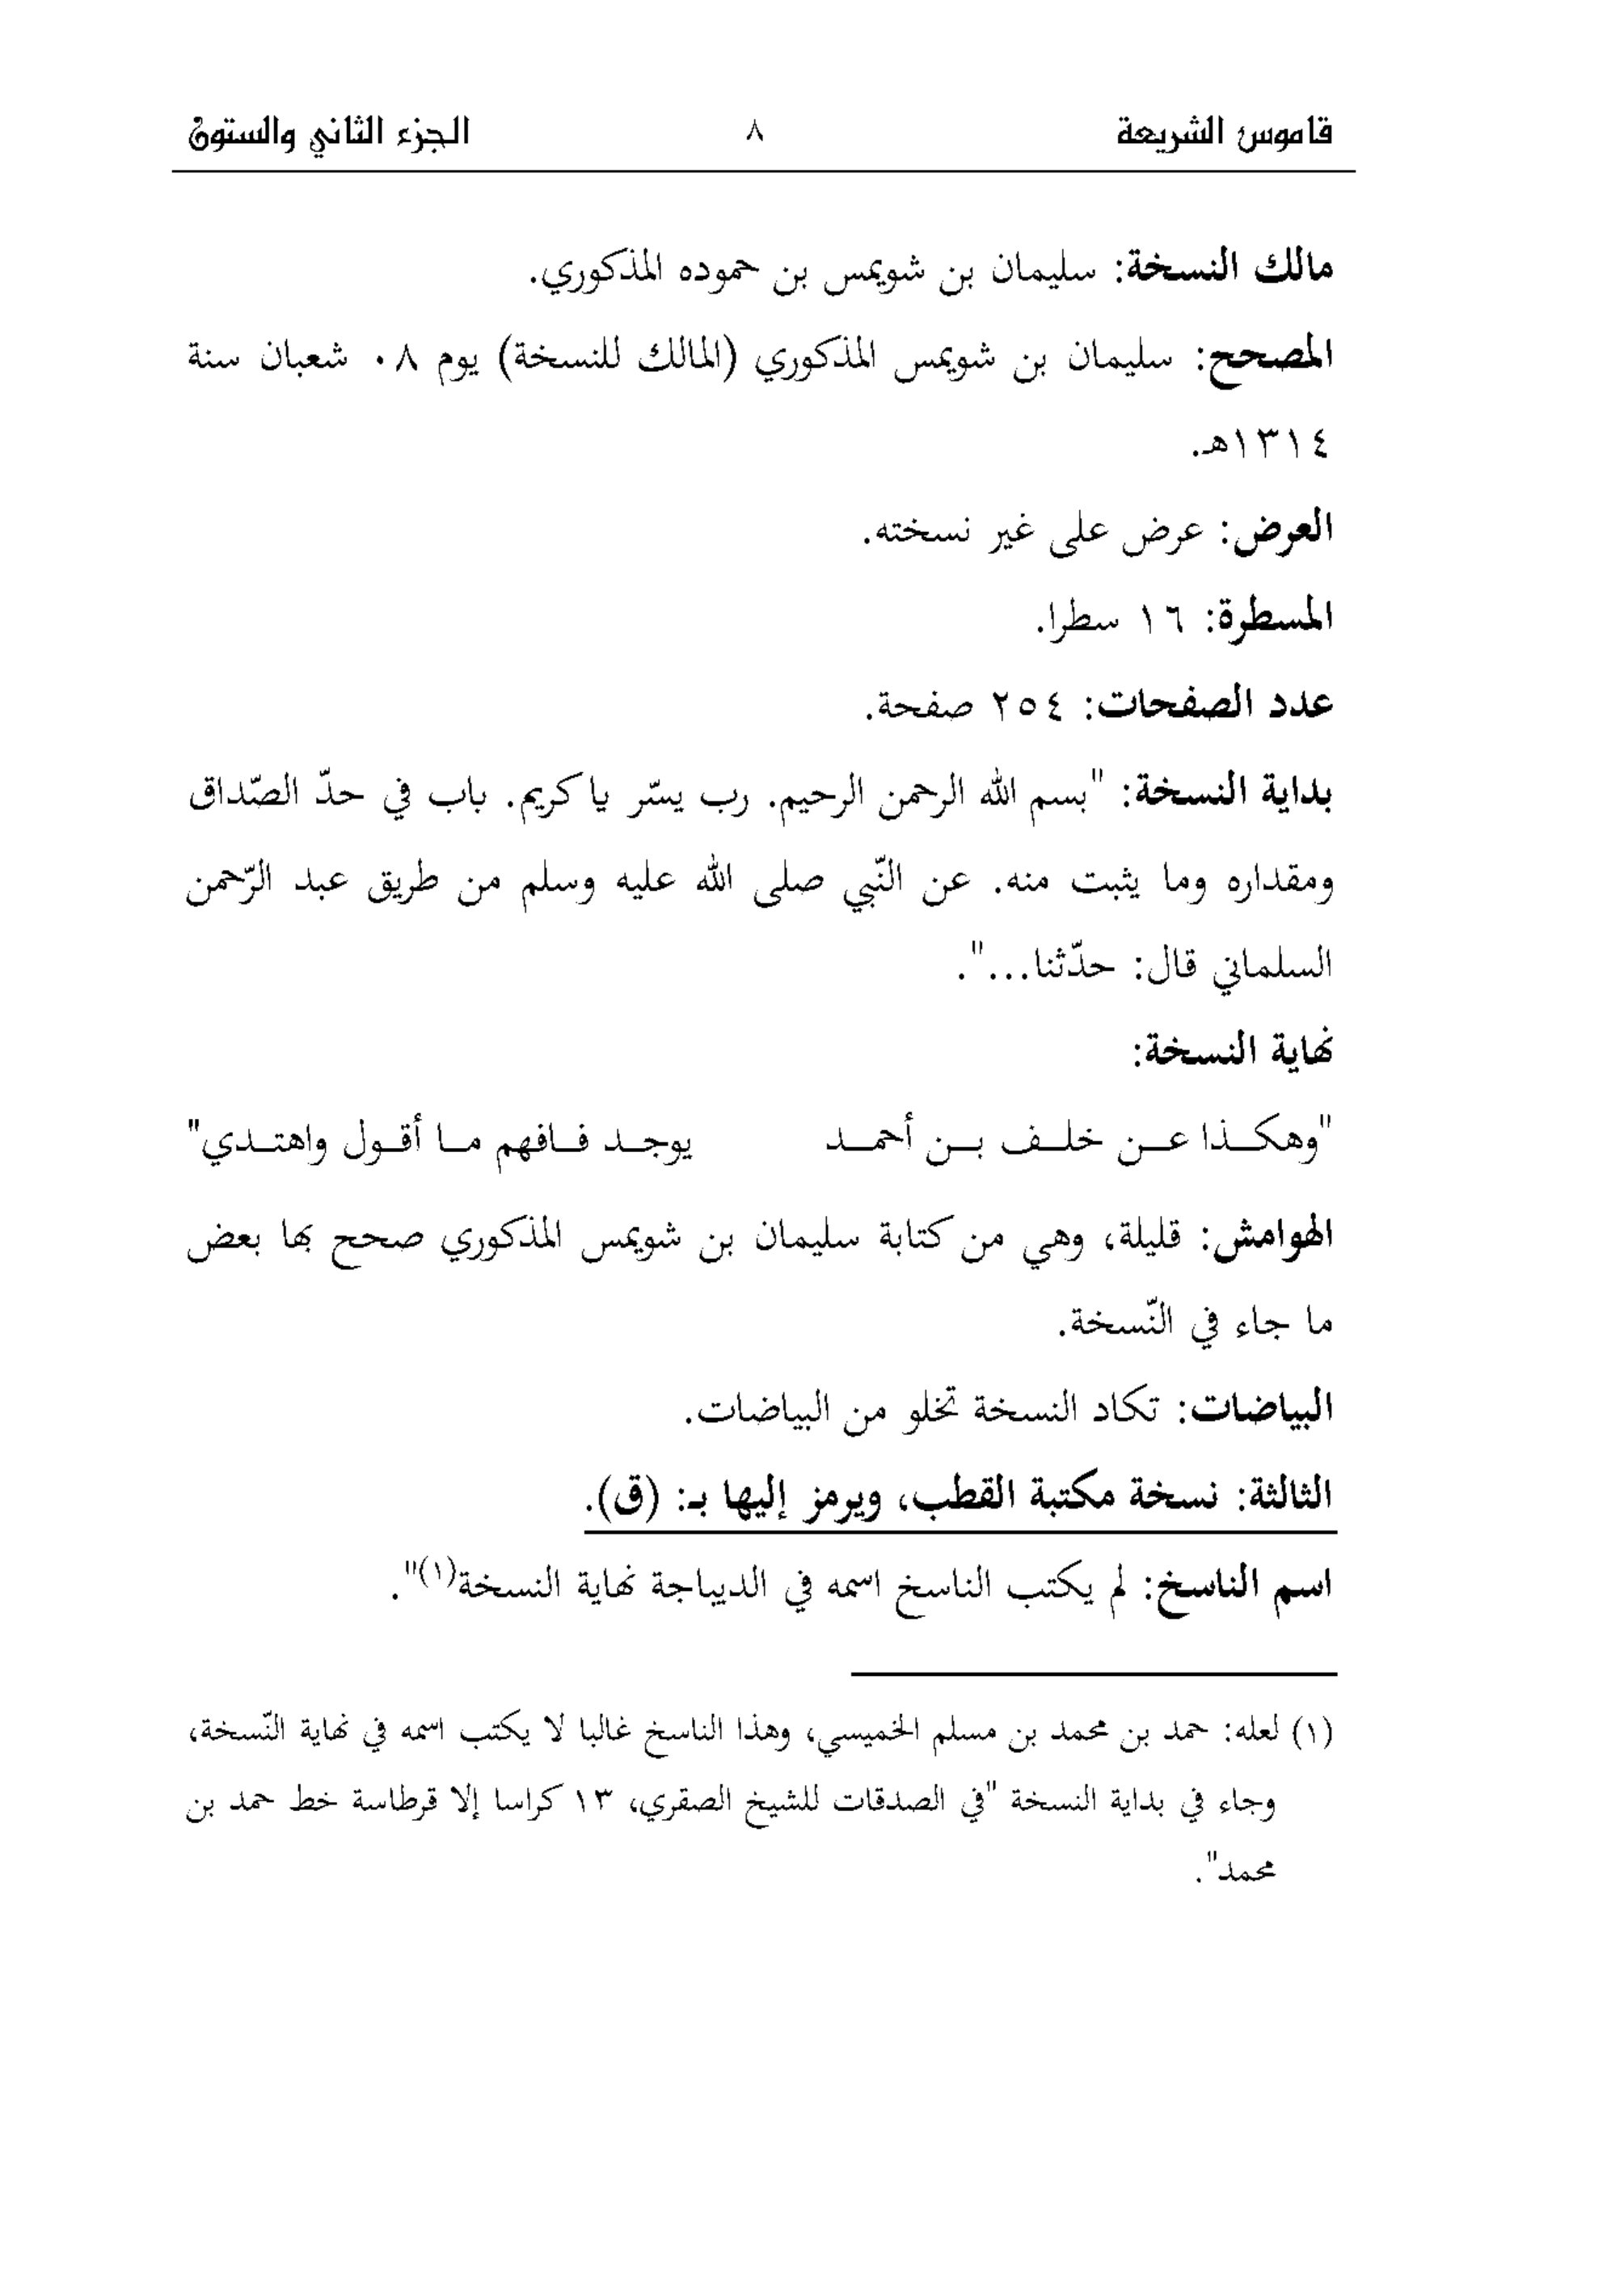 قاموس الشريعة ٨ الجزء الثاني والستون
مالك النسخة: سليمان بن شويمس بن حموده المذكوري.
المصحح: سليمان بن شويمس المذكوري (المالك للنسخة) يوم ٠٨ شعبان سنة
١٣١٤هـ.
العرض: عرض على غير نسخته.
المسطرة: ١٦ سطرا.
عدد الصفحات: ٢٥٤ صفحة.
بداية النسخة: "بسم الله الرحمن الرحيم. رب يسّر يا كريم. باب في حدّ الصّداق
ومقداره وما يثبت منه. عن النّبي صلى الله عليه وسلم من طريق عبد الرّحمن
السلماني قال: حدّثنا...".
نهاية النسخة:
"وهكـذا عـن خلـف بـن أحمـد يوجـد فـافهم مـا أقـول واهتـدي"
الهوامش: قليلة، وهي من كتابة سليمان بن شويمس المذكوري صحح بها بعض
ما جاء في النّسخة.
البياضات: تكاد النسخة تخلو من البياضات.
الثالثة: نسخة مكتبة القطب، ويرمز إليها بـ: (ق).
اسم الناسخ: لم يكتب الناسخ اسمه في الديباجة نهاية النسخة(١)".
(١) لعله: حمد بن محمد بن مسلم الخميسي، وهذا الناسخ غالبا لا يكتب اسمه في نهاية النّسخة،
وجاء في بداية النسخة "في الصدقات للشيخ الصقري، ١٣ كراسا إلا قرطاسة خط حمد بن
محمد".